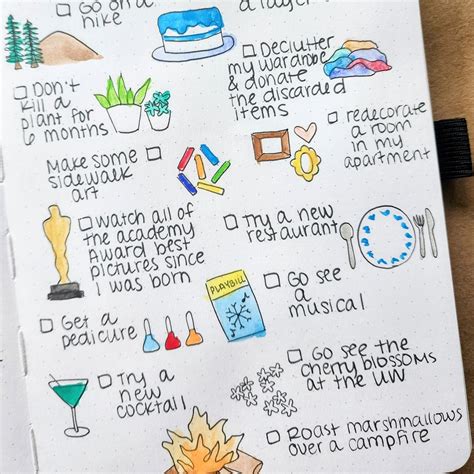 Go on a
hike
a layer
Declutter
my wardrobe
& donate
the discarded
items
Don't
kill a
plant for
6 months
redecorate
a room
in my
apartment
Make some
sidewalk
art
Watch all of
the academy
Award best
pictures since
I was born
Try a new
restaurant
PLAYBILL
Go see
a
musical
Get a
pedicure
Go see the
cherry blossoms
at the UW
Try a
new
cocktail
Roast marshmallows
over a campfire